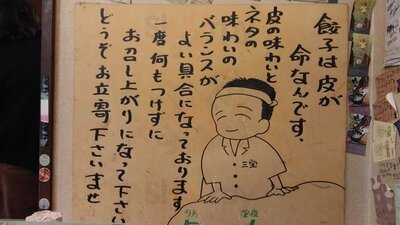 餃子は皮が
命なんです、
皮の味わいと
ネタの
味わいの
バランスが
よい具合になっております
一度何もつけずに
お召し上がりになって下さい
どうぞお立寄下さいませ
三宝